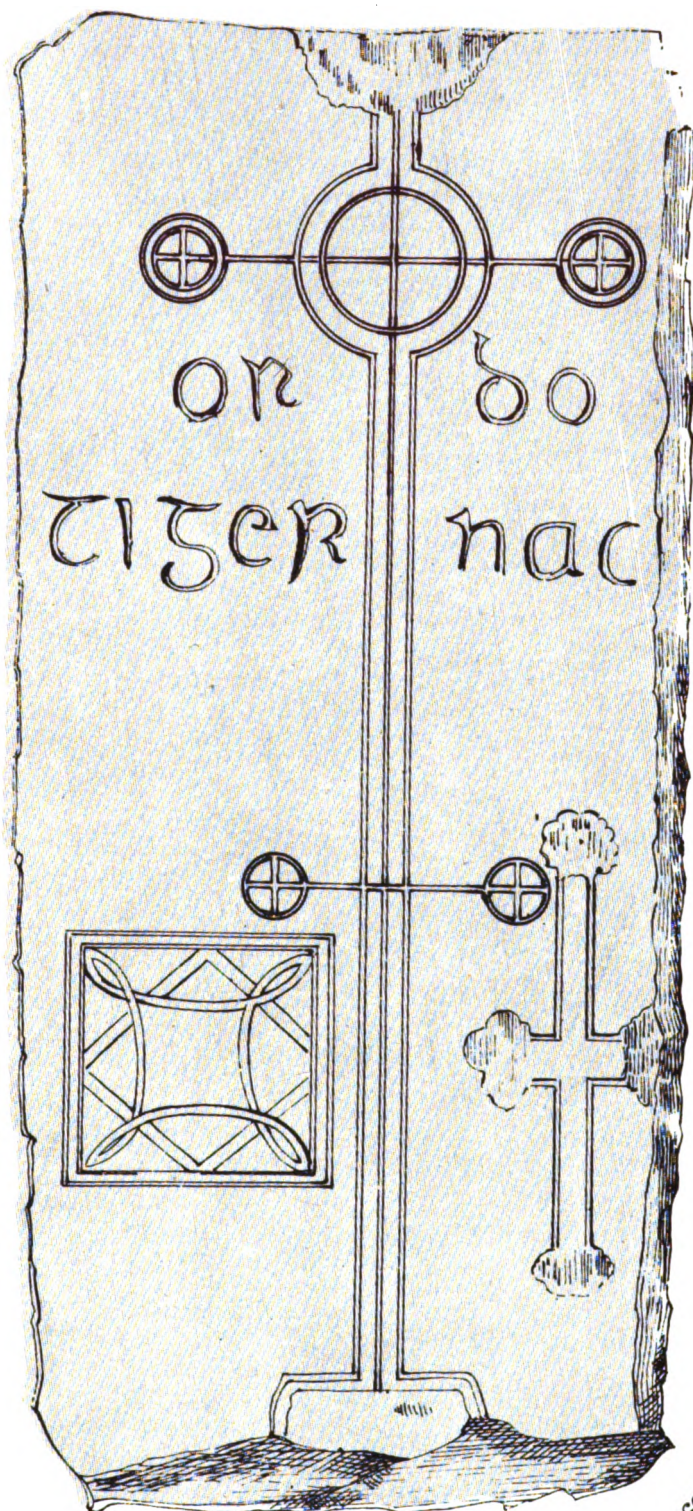 or do
tiger nac